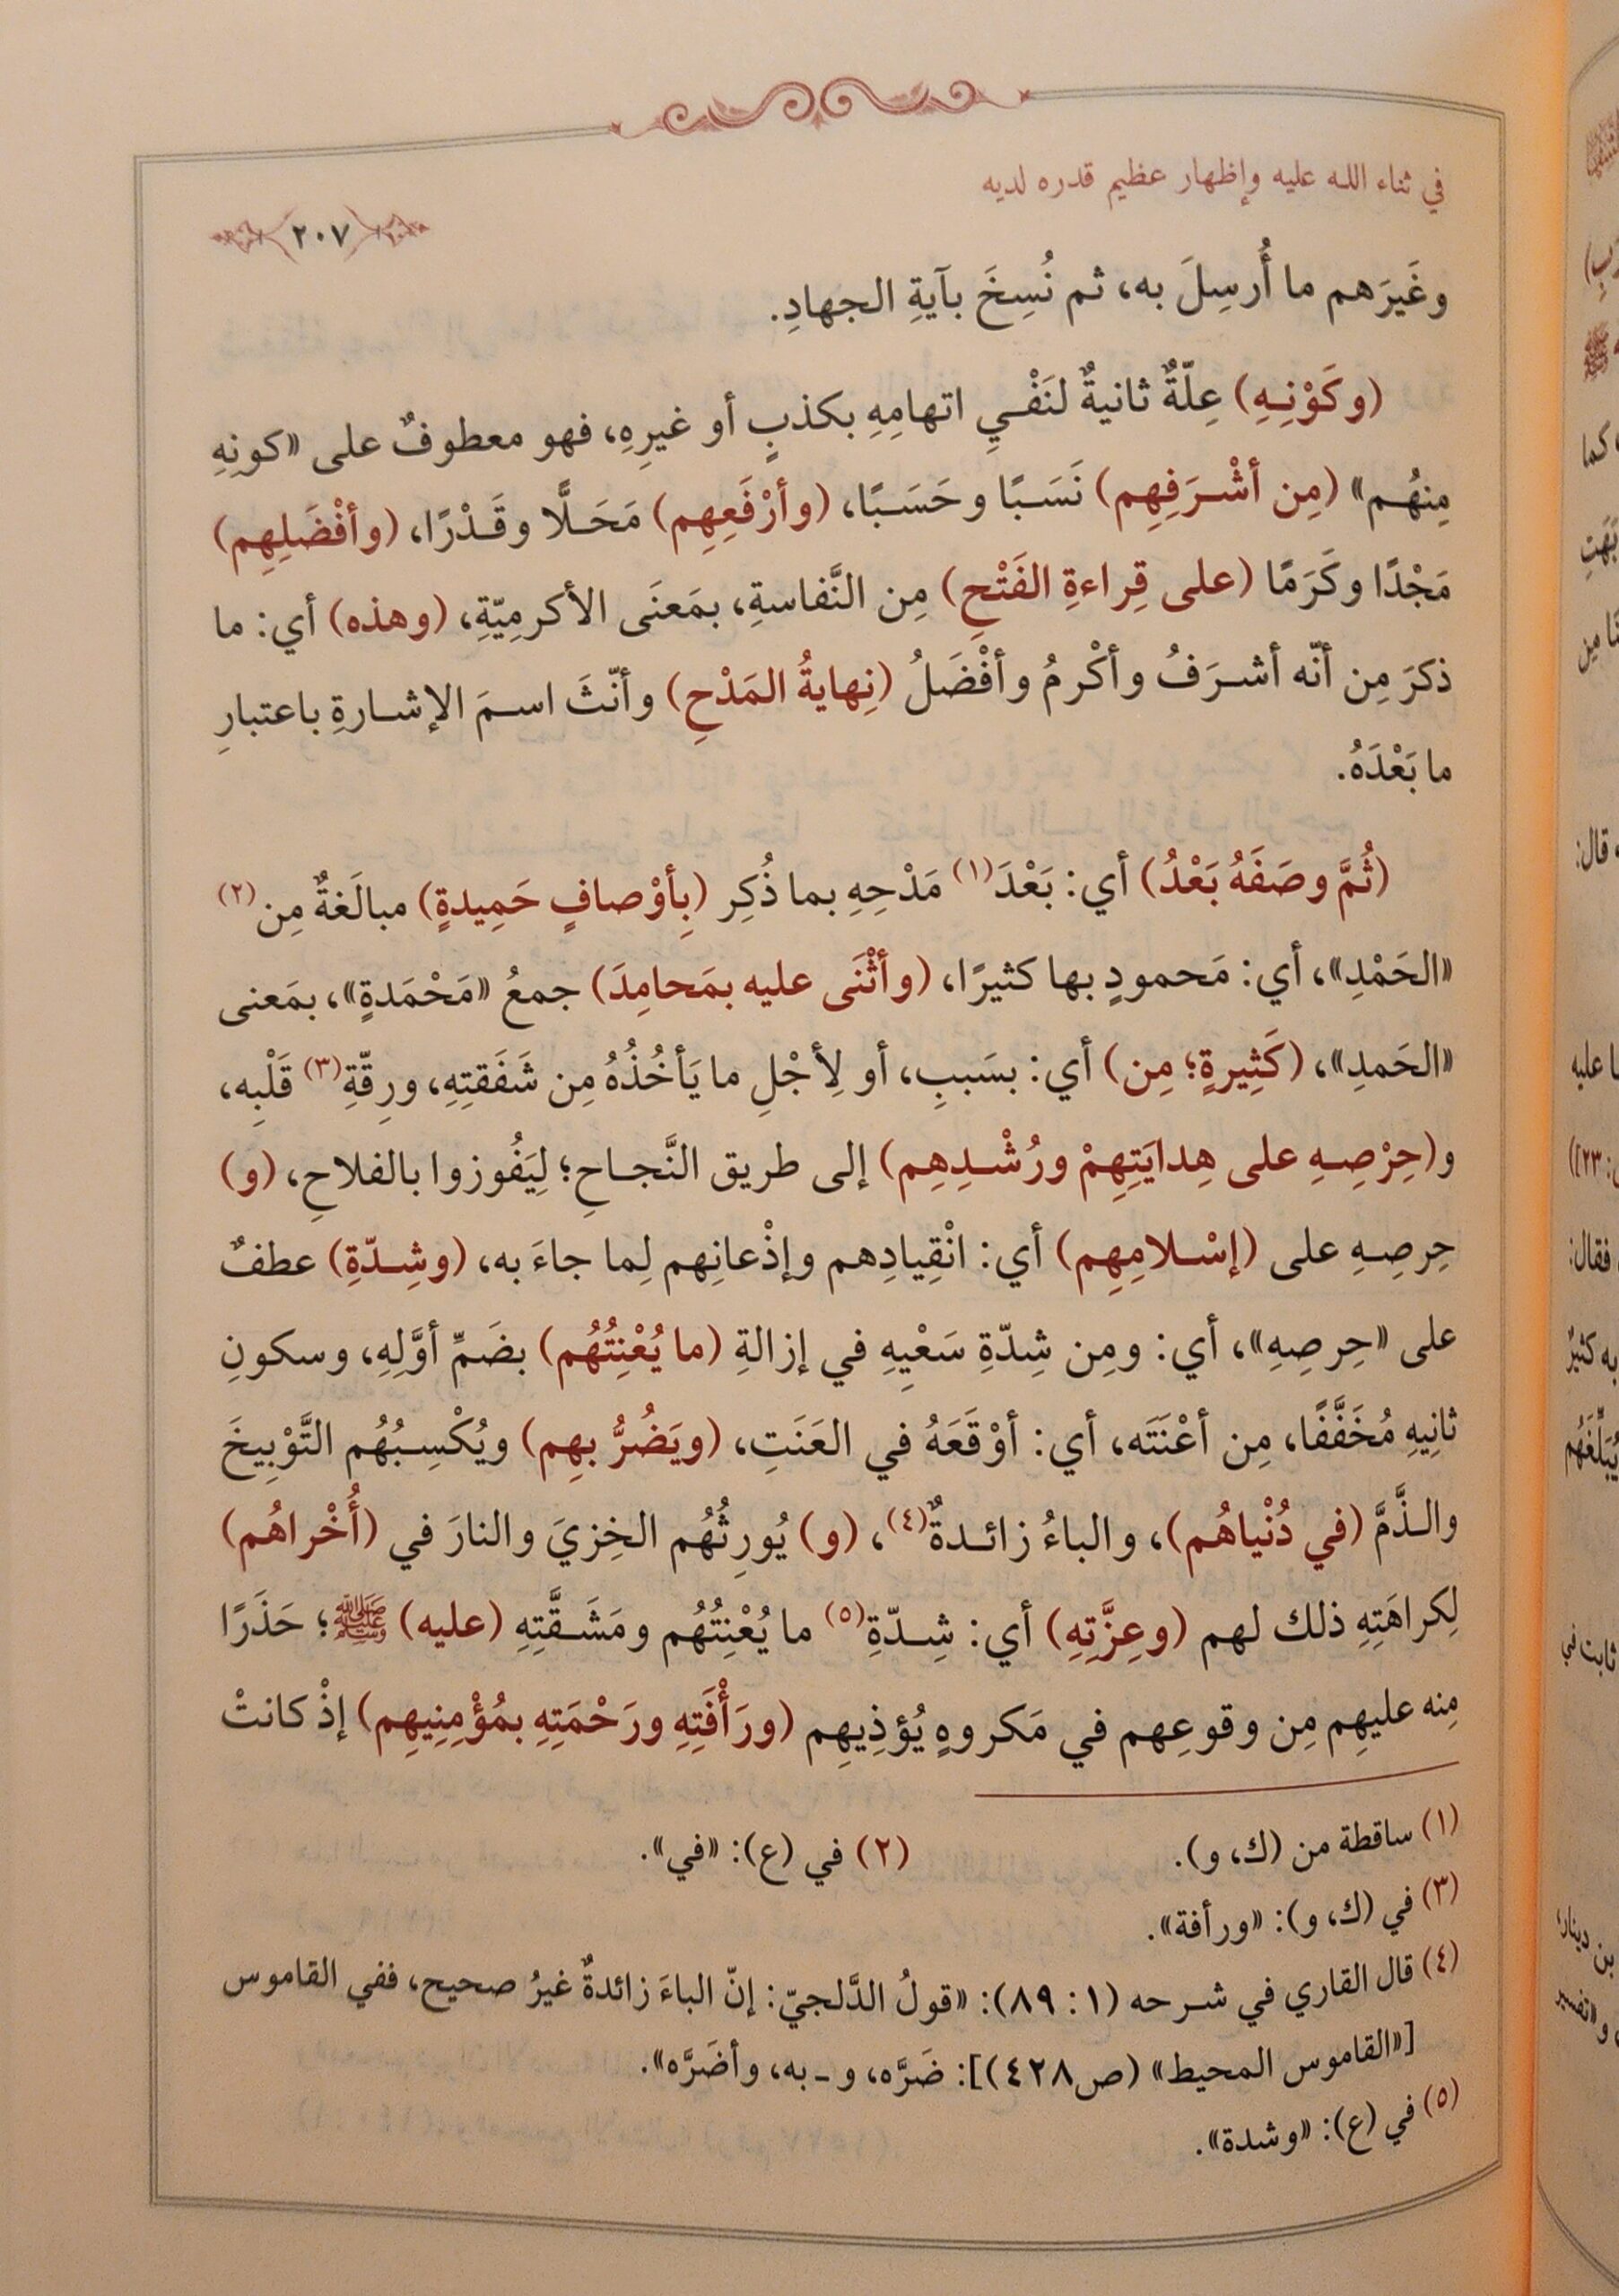 في ثناء الله عليه وإظهار عظيم قدره لديه
٢٠٧
وغَيرَهم ما أُرسِلَ به، ثم نُسِخَ بآيةِ الجهادِ.
(وكَوْنِهِ) عِلّةٌ ثانيةٌ لنَفْيِ اتهامِهِ بكذبٍ أو غيرِهِ، فهو معطوفٌ على «كونِهِ
مِنهُم» (مِن أشْرَفِهِم) نَسَبًا وحَسَبًا، (وأرْفَعِهِم) مَحَلًّا وقَدْرًا، (وأفْضَلِهِم)
مَجْدًا وكَرَمًا (على قِراءةِ الفَتْحِ) مِن النَّفاسةِ، بمَعنَى الأكرمِيّةِ، (وهذه) أي: ما
ذكرَ مِن أنّه أشرَفُ وأكْرمُ وأفْضَلُ (نِهايةُ المَدْحِ) وأنّثَ اسمَ الإشارةِ باعتبارِ
ما بَعْدَهُ.
(ثُمَّ وصَفَهُ بَعْدُ) أي: بَعْدَ(١) مَدْحِهِ بما ذُكِر (بِأوْصافٍ حَمِيدةٍ) مبالَغةٌ مِن(٢)
«الحَمْدِ»، أي: مَحمودٍ بها كثيرًا، (وأثْنَى عليه بمَحامِدَ) جمعُ «مَحْمَدةٍ»، بمَعنى
«الحَمدِ»، (كَثِيرةٍ؛ مِن) أي: بسَببِ، أو لِأجْلِ ما يَأخُذُهُ مِن شَفَقتِهِ، ورِقّةِ(٣) قَلْبِه،
و(حِرْصِهِ على هِدايَتِهِمْ ورُشْدِهِم) إلى طريق النَّجاحِ؛ لِيَفُوزوا بالفلاحِ، (و)
حِرصِهِ على (إسْلامِهِم) أي: انْقِيادِهم وإذْعانِهم لِما جاءَ به، (وشِدّةِ) عطفٌ
على «حِرصِهِ»، أي: ومِن شِدّةِ سَعْيِهِ في إزالةِ (ما يُعْنِتُهُم) بضَمِّ أوَّلِهِ، وسكونِ
ثانِيهِ مُخَفَّفًا، مِن أعْنَتَه، أي: أوْقَعَهُ في العَنَتِ، (ويَضُرُّ بهِم) ويُكْسِبُهُم التَّوْبِيخَ
والذَّمَّ (في دُنْياهُم)، والباءُ زائدةٌ(٤)، (و) يُورِثُهُم الخِزيَ والنارَ في (أُخْراهُم)
لِكراهَتِهِ ذلك لهم (وعِزَّتِهِ) أي: شِدّةِ(٥) ما يُعْنِتُهُم ومَشَقَّتِهِ (عليه) ﷺ؛ حَذَرًا
مِنه عليهِم مِن وقوعِهم في مَكروهٍ يُؤذِيهِم (ورَأْفَتِهِ ورَحْمَتِهِ بمُؤْمِنِيهِم) إذْ كانتْ
(١) ساقطة من (ك، و). (٢) في (ع): «في».
(٣) في (ك، و): «ورأفة».
(٤) قال القاري في شرحه (١ : ٨٩): «قولُ الدَّلجيّ: إنّ الباءَ زائدةٌ غيرُ صحيح، ففي القاموس
[«القاموس المحيط» (ص٤٢٨)]: ضَرَّه، و ـ به، وأضَرَّه».
(٥) في (ع): «وشدة».